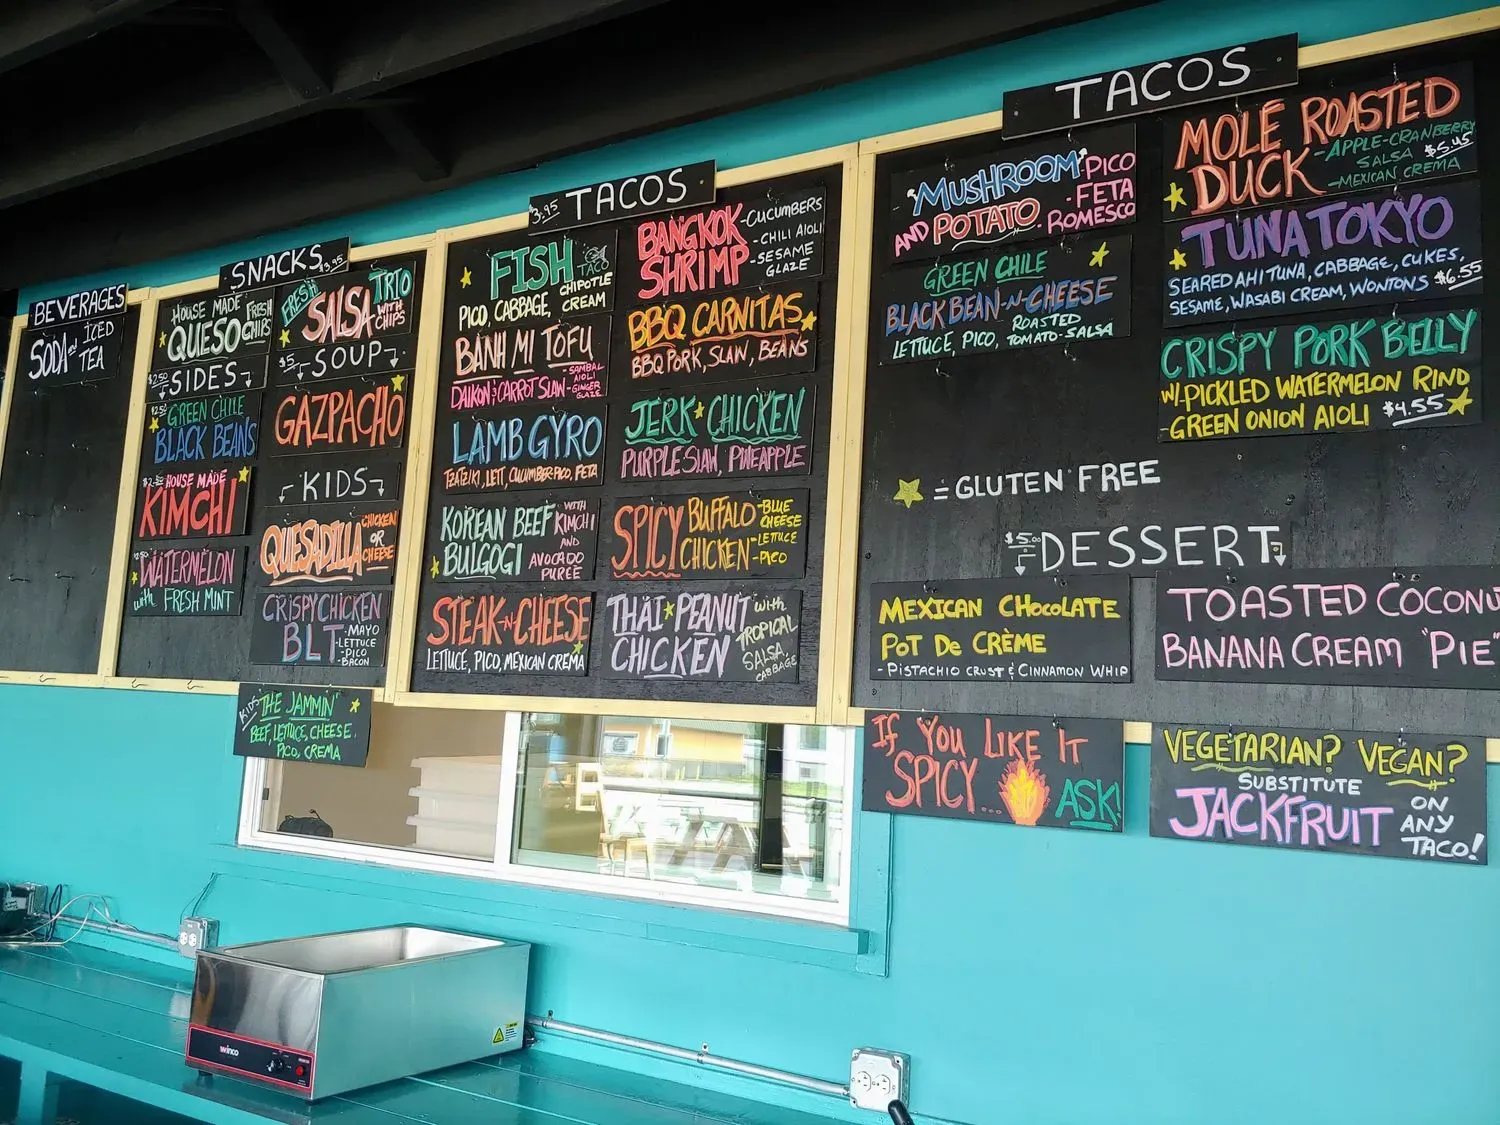 BEVERAGES
SODA and ICED
TEA
SNACKS $3.95
HOUSE MADE
QUESO
FRESH
CHIPS
FRESH
SALSA
TRIO
WITH
CHIPS
$2.50 SIDES
$2.50 GREEN CHILE
BLACK BEANS
HOUSE MADE
KIMCHI
WATERMELON
with FRESH MINT
$5 SOUP
GAZPACHO
KIDS
QUESADILLA
CHICKEN
OR
CHEESE
CRISPY CHICKEN
BLT
-MAYO
-LETTUCE
-PICO
-BACON
KIDS "THE JAMMIN"
BEEF, LETTUCE, CHEESE,
PICO, CREMA
$3.95 TACOS
FISH
TACO
PICO, CABBAGE, CHIPOTLE
CREAM
BANH MI TOFU
DAIKON & CARROT SLAW
-SAMBAL
AIOLI
-GINGER
GLAZE
LAMB GYRO
TZATZIKI, LETT, CUCUMBER-PICO, FETA
KOREAN BEEF
BULGOGI
WITH
KIMCHI
AND
AVOCADO
PUREE
STEAK-N-CHEESE
LETTUCE, PICO, MEXICAN CREMA
BANGKOK
SHRIMP
-CUCUMBERS
-CHILI AIOLI
-SESAME
GLAZE
BBQ CARNITAS
BBQ PORK, SLAW, BEANS
JERK CHICKEN
PURPLE SLAW, PINEAPPLE
SPICY BUFFALO
CHICKEN
-BLUE
CHEESE
-LETTUCE
-PICO
THAI PEANUT
CHICKEN
with
TROPICAL
SALSA,
CABBAGE
TACOS
MUSHROOM
AND POTATO
-PICO
-FETA
-ROMESCO
GREEN CHILE
BLACK BEAN-N-CHEESE
LETTUCE, PICO, ROASTED
TOMATO-SALSA
MOLE ROASTED
DUCK
-APPLE-CRANBERRY
SALSA $5.45
-MEXICAN CREMA
TUNA TOKYO
SEARED AHI TUNA, CABBAGE, CUKES,
SESAME, WASABI CREAM, WONTONS $6.55
CRISPY PORK BELLY
W/-PICKLED WATERMELON RIND
-GREEN ONION AIOLI $4.55
= GLUTEN FREE
$5.00 DESSERT
MEXICAN CHOCOLATE
POT DE CRÈME
-PISTACHIO CRUST & CINNAMON WHIP
TOASTED COCONU
BANANA CREAM "PIE
IF YOU LIKE IT
SPICY... ASK!
VEGETARIAN? VEGAN?
SUBSTITUTE
JACKFRUIT
ON
ANY
TACO!
winco